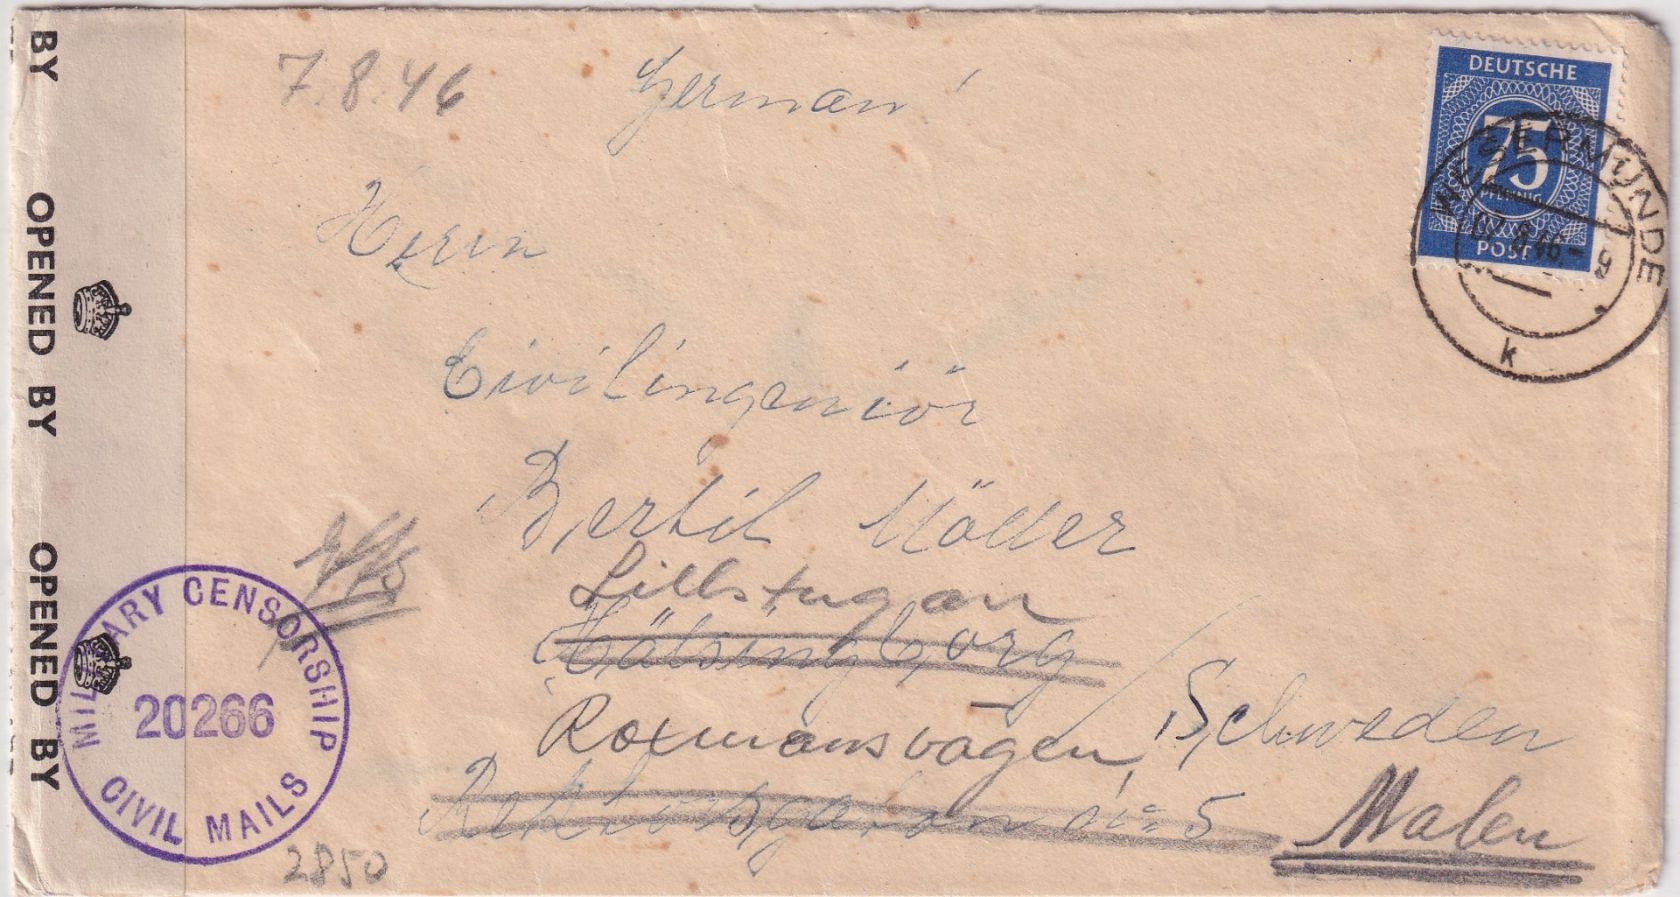 BY
OPENED BY
OPENED BY
7.8.46
German!
DEUTSCHE
75
PFENNIG
POST
WESERMÜNDE
07.8.46.-
5
k
Herrn
Civilingeniör
Bertil Möller
Lillstugan
Hälsingborg / Schweden
Roxmansvägen
Rektorsgatan no: 5
Malen
MILITARY CENSORSHIP
20266
CIVIL MAILS
2850